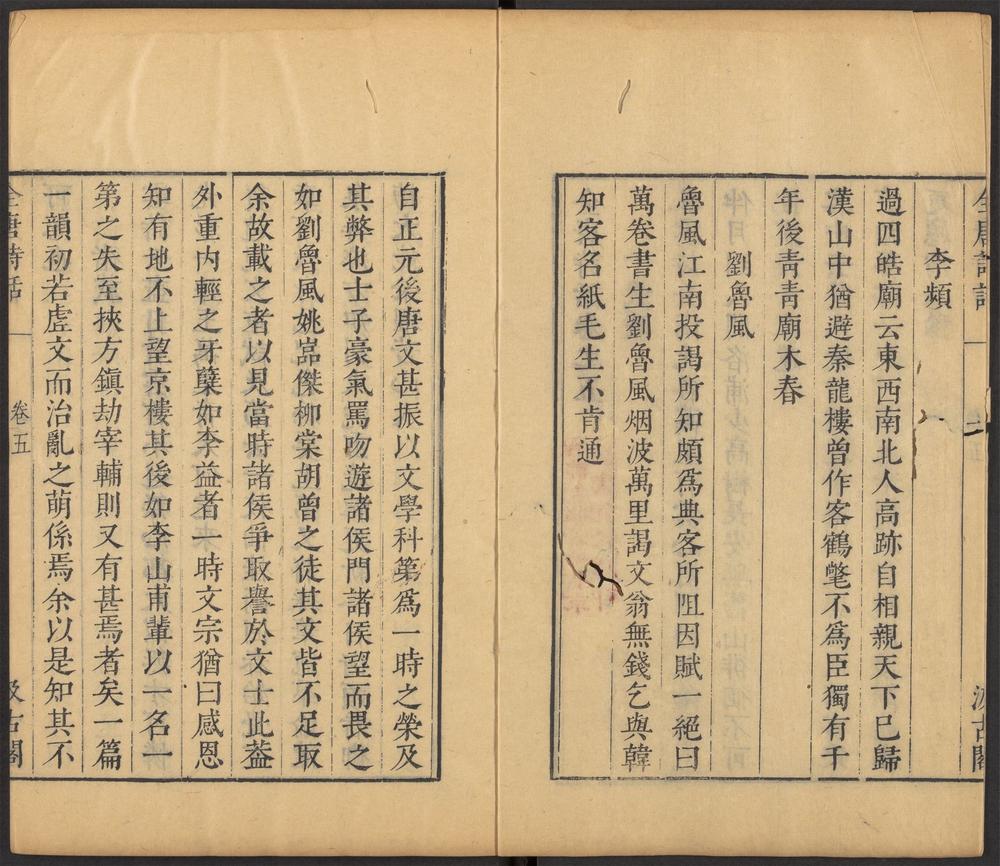 全唐詩話
二
汲古閣
李頻
過四皓廟云東西南北人高跡自相親天下已歸
漢山中猶避秦龍樓曾作客鶴氅不爲臣獨有千
年後青青廟木春
劉魯風
魯風江南投謁所知頗爲典客所阻因賦一絕曰
萬卷書生劉魯風烟波萬里謁文翁無錢乞與韓
知客名紙毛生不肯通
自正元後唐文甚振以文學科第爲一時之榮及
其弊也士子豪氣罵吻遊諸侯門諸侯望而畏之
如劉魯風姚嵓傑柳棠胡曾之徒其文皆不足取
余故載之者以見當時諸侯爭取譽於文士此葢
外重内輕之牙蘖如李益者一時文宗猶曰感恩
知有地不上望京樓其後如李山甫輩以一名一
第之失至挾方鎮劫宰輔則又有甚焉者矣一篇
一韻初若虛文而治亂之萌係焉余以是知其不
全唐詩話
卷五
汲古閣